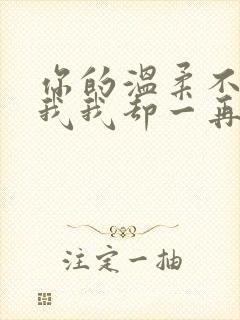 你的温柔不
我我却一再
注定一抽